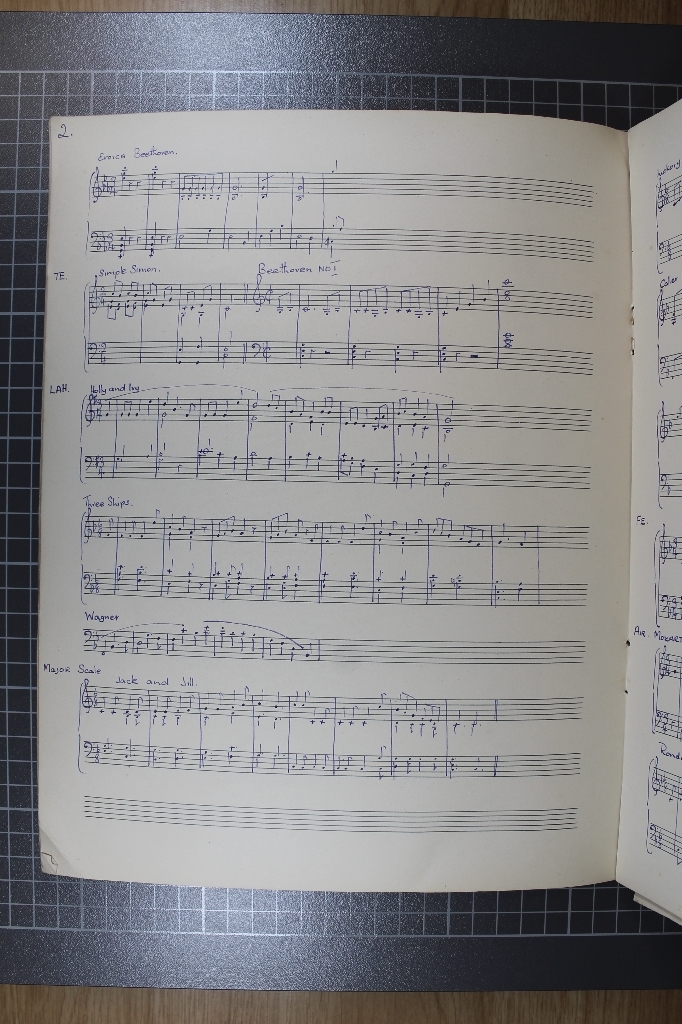 2.
Eroica Beethoven.
TE. Simple Simon. Beethoven No I
LAH. Holly and Ivy
Three Ships.
Wagner
Major Scale
Jack and Jill.
Air. Mozart